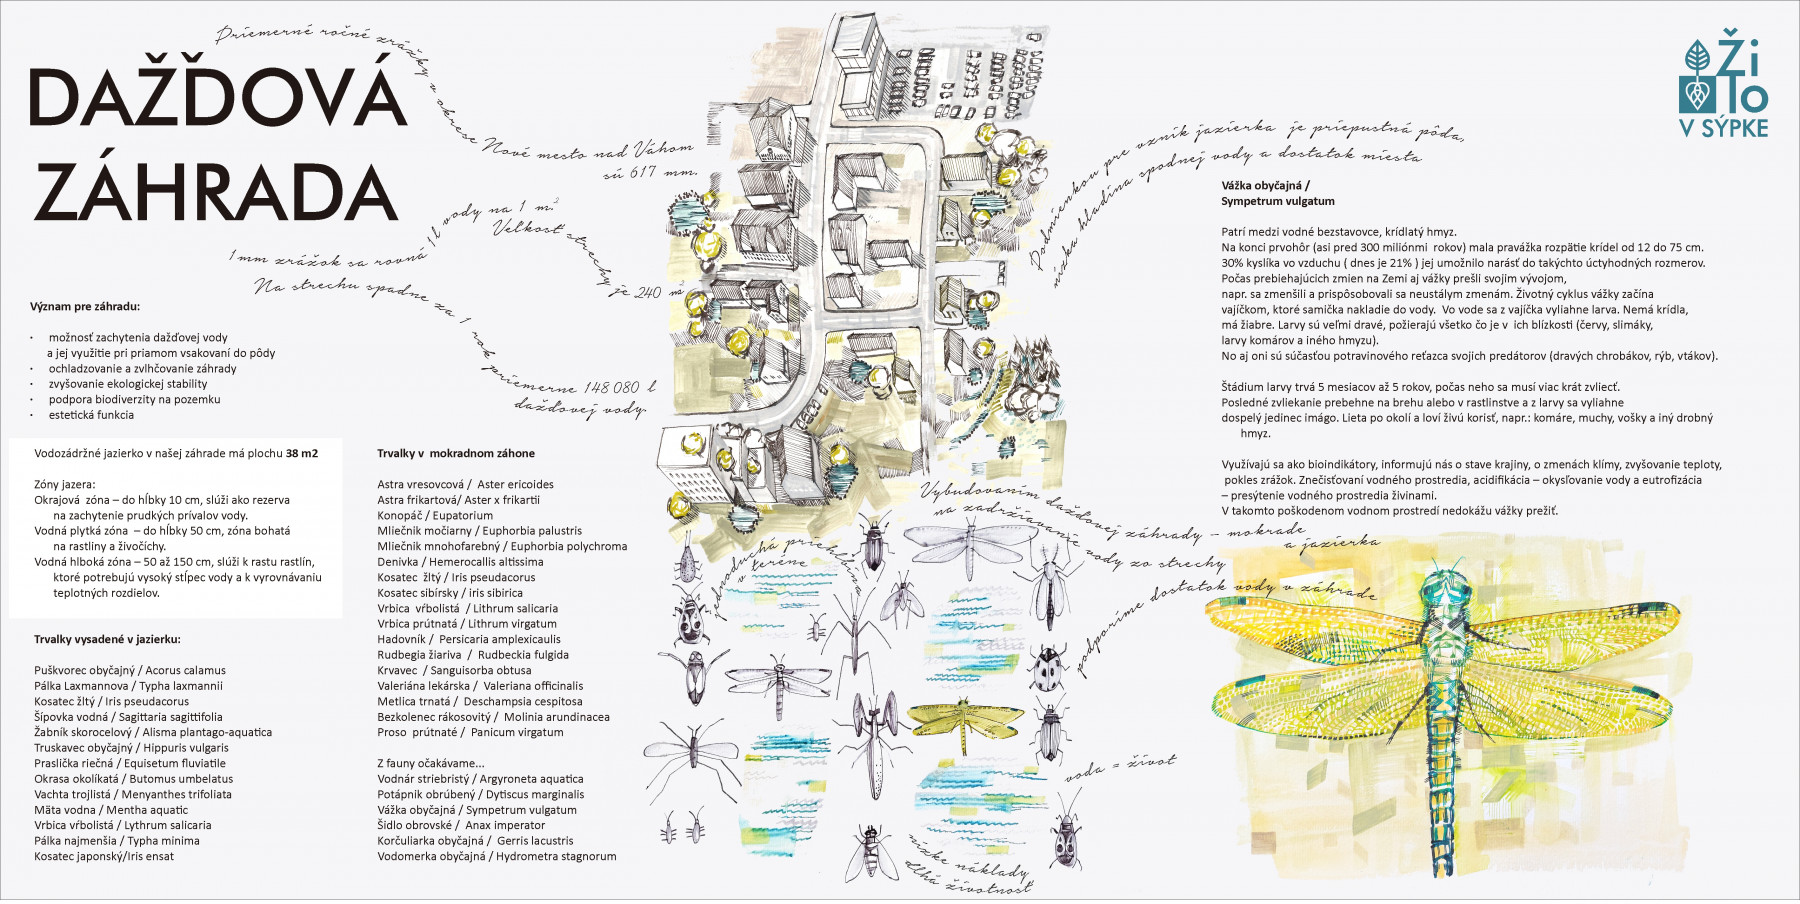 DAŽĎOVÁ
ZÁHRADA
Priemerné ročné zrážky v okrese Nové mesto nad Váhom
sú 617 mm.
1mm zrážok sa rovná 1l vody na 1 m²
Veľkosť strechy je 240 m²
Na strechu spadne za 1 rok priemerne 148 080 l
dažďovej vody.
Význam pre záhradu:
· možnosť zachytenia dažďovej vody
a jej využitie pri priamom vsakovaní do pôdy
· ochladzovanie a zvlhčovanie záhrady
· zvyšovanie ekologickej stability
· podpora biodiverzity na pozemku
· estetická funkcia
Vodozádržné jazierko v našej záhrade má plochu 38 m2
Zóny jazera:
Okrajová zóna – do hĺbky 10 cm, slúži ako rezerva
na zachytenie prudkých prívalov vody.
Vodná plytká zóna – do hĺbky 50 cm, zóna bohatá
na rastliny a živočíchy.
Vodná hlboká zóna – 50 až 150 cm, slúži k rastu rastlín,
ktoré potrebujú vysoký stĺpec vody a k vyrovnávaniu
teplotných rozdielov.
Trvalky vysadené v jazierku:
Puškvorec obyčajný / Acorus calamus
Pálka Laxmannova / Typha laxmannii
Kosatec žltý / Iris pseudacorus
Šípovka vodná / Sagittaria sagittifolia
Žabník skorocelový / Alisma plantago-aquatica
Truskavec obyčajný / Hippuris vulgaris
Praslička riečná / Equisetum fluviatile
Okrasa okolíkatá / Butomus umbelatus
Vachta trojlistá / Menyanthes trifoliata
Mäta vodna / Mentha aquatic
Vrbica vŕbolistá / Lythrum salicaria
Pálka najmenšia / Typha minima
Kosatec japonský/Iris ensat
Trvalky v mokradnom záhone
Astra vresovcová / Aster ericoides
Astra frikartová/ Aster x frikartii
Konopáč / Eupatorium
Mliečnik močiarny / Euphorbia palustris
Mliečnik mnohofarebný / Euphorbia polychroma
Denivka / Hemerocallis altissima
Kosatec žltý / Iris pseudacorus
Kosatec sibírsky / iris sibirica
Vrbica vŕbolistá / Lithrum salicaria
Vrbica prútnatá / Lithrum virgatum
Hadovník / Persicaria amplexicaulis
Rudbegia žiariva / Rudbeckia fulgida
Krvavec / Sanguisorba obtusa
Valeriána lekárska / Valeriana officinalis
Metlica trnatá / Deschampsia cespitosa
Bezkolenec rákosovitý / Molinia arundinacea
Proso prútnaté / Panicum virgatum
Z fauny očakávame...
Vodnár striebristý / Argyroneta aquatica
Potápnik obrúbený / Dytiscus marginalis
Vážka obyčajná / Sympetrum vulgatum
Šidlo obrovské / Anax imperator
Korčuliarka obyčajná / Gerris lacustris
Vodomerka obyčajná / Hydrometra stagnorum
Podmienkou pre vznik jazierka je priepustná pôda,
nízka hladina spodnej vody a dostatok miesta
Vybudovaním dažďovej záhrady – mokrade
a jazierka
na zadržiavanie vody zo strechy
podporíme dostatok vody v záhrade
jednoduchá priehlbina
v teréne
voda = život
nízke náklady
dlhá životnosť
Ži
To
V SÝPKE
Vážka obyčajná /
Sympetrum vulgatum
Patrí medzi vodné bezstavovce, krídlatý hmyz.
Na konci prvohôr (asi pred 300 miliónmi rokov) mala pravážka rozpätie krídel od 12 do 75 cm.
30% kyslíka vo vzduchu ( dnes je 21% ) jej umožnilo narásť do takýchto úctyhodných rozmerov.
Počas prebiehajúcich zmien na Zemi aj vážky prešli svojim vývojom,
napr. sa zmenšili a prispôsobovali sa neustálym zmenám. Životný cyklus vážky začína
vajíčkom, ktoré samička nakladie do vody. Vo vode sa z vajíčka vyliahne larva. Nemá krídla,
má žiabre. Larvy sú veľmi dravé, požierajú všetko čo je v ich blízkosti (červy, slimáky,
larvy komárov a iného hmyzu).
No aj oni sú súčasťou potravinového reťazca svojich predátorov (dravých chrobákov, rýb, vtákov).
Štádium larvy trvá 5 mesiacov až 5 rokov, počas neho sa musí viac krát zvliecť.
Posledné zvliekanie prebehne na brehu alebo v rastlinstve a z larvy sa vyliahne
dospelý jedinec imágo. Lieta po okolí a loví živú korisť, napr.: komáre, muchy, vošky a iný drobný
hmyz.
Využívajú sa ako bioindikátory, informujú nás o stave krajiny, o zmenách klímy, zvyšovanie teploty,
pokles zrážok. Znečisťovaní vodného prostredia, acidifikácia – okysľovanie vody a eutrofizácia
– presýtenie vodného prostredia živinami.
V takomto poškodenom vodnom prostredí nedokážu vážky prežiť.